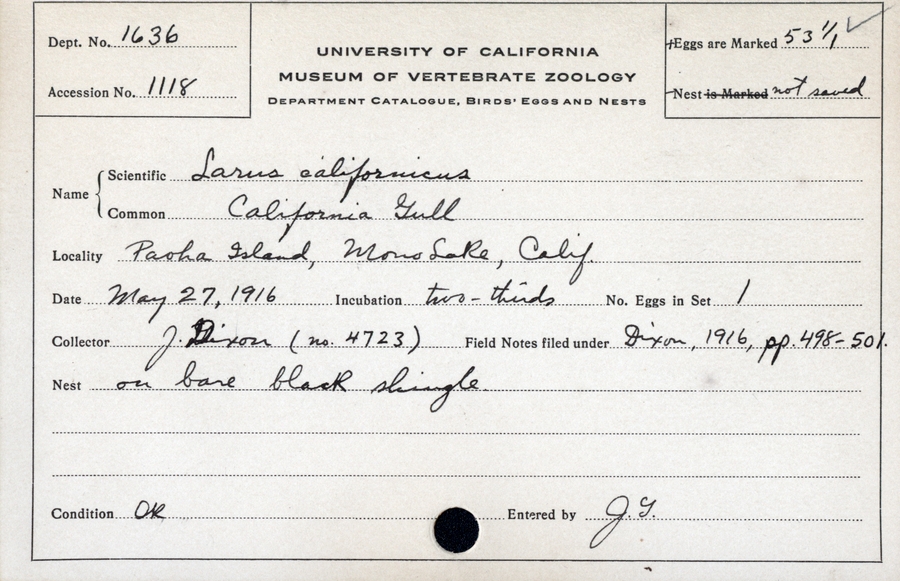 Dept. No. 1636
Accession No. 1118
UNIVERSITY OF CALIFORNIA
MUSEUM OF VERTEBRATE ZOOLOGY
DEPARTMENT CATALOGUE, BIRDS' EGGS AND NESTS
Eggs are Marked 53 1/1 ✓
Nest is Marked not saved
Name { Scientific Larus californicus
Common California Gull
Locality Paoha Island, Mono Lake, Calif.
Date May 27, 1916 Incubation two-thirds No. Eggs in Set 1
Collector J. Dixon (no. 4723) Field Notes filed under Dixon, 1916, pp. 498-501.
Nest on bare black shingle
Condition OK Entered by J.G.